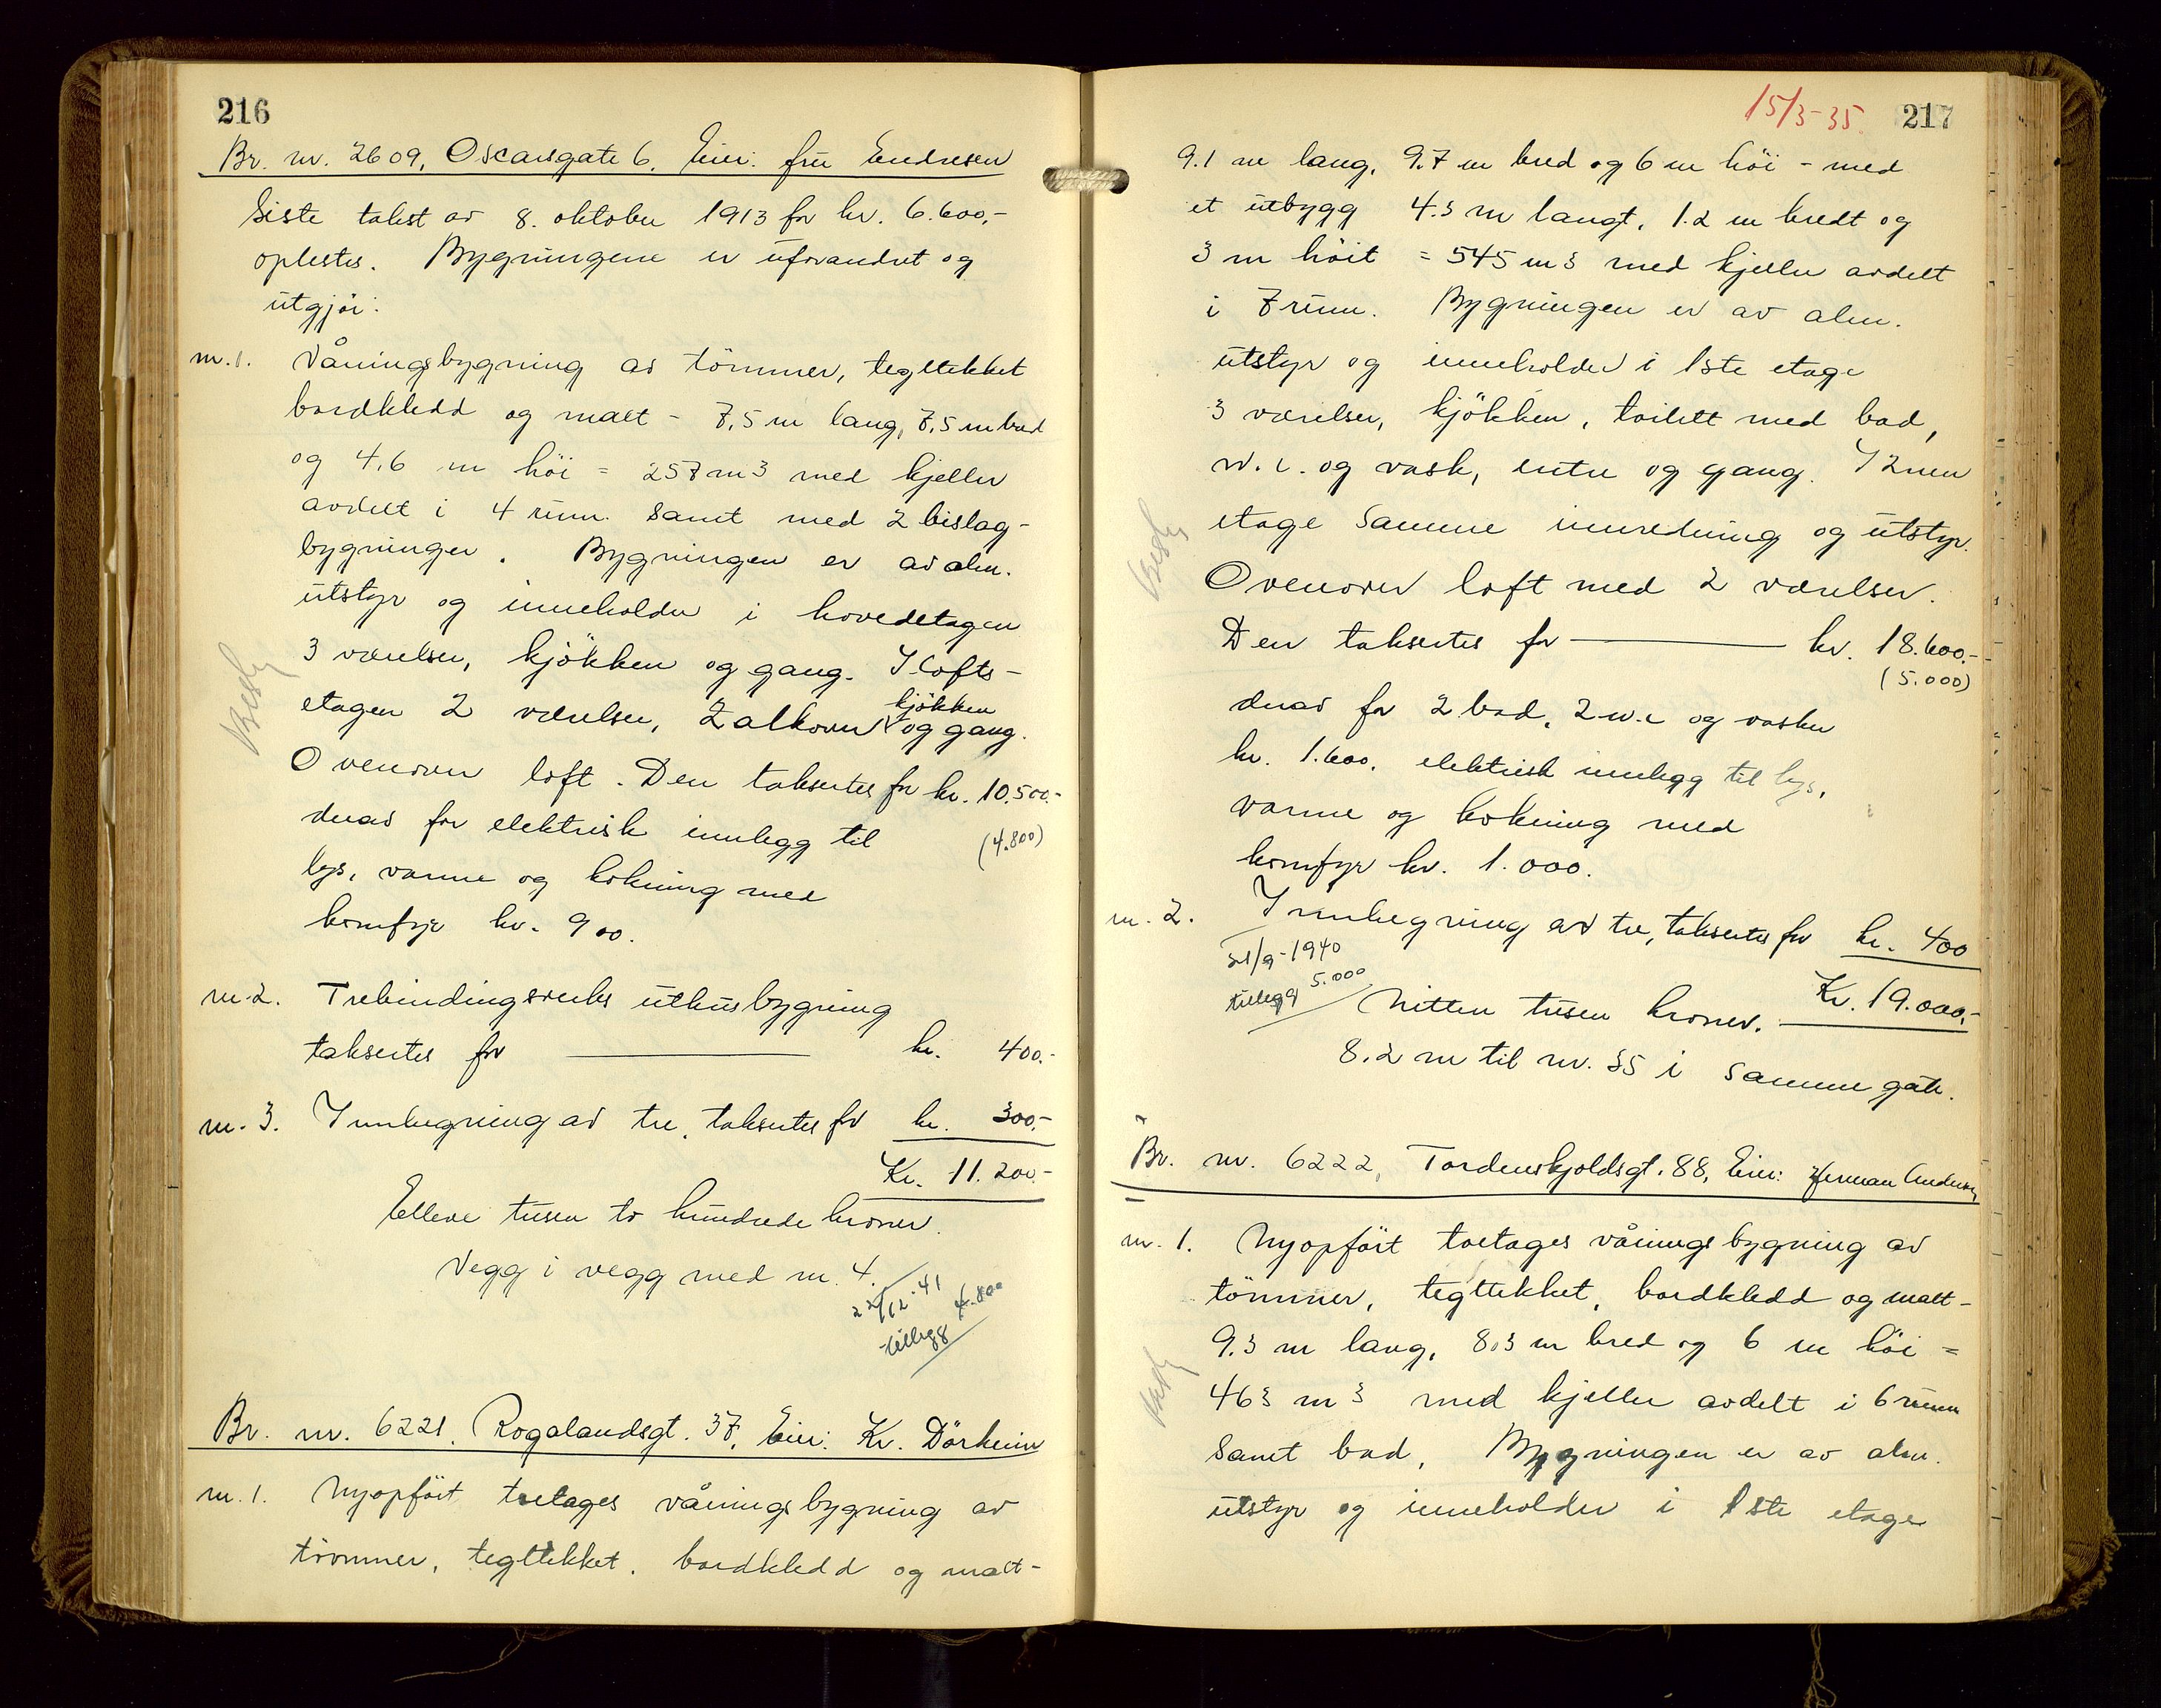 216
Br. nr. 2609, Oscarsgate 6. Eier: fru Endresen
Siste takst av 8. oktober 1913 for kr. 6.600,-
oplestes. Bygningene er uforandret og
utgjør:
m. 1. Våningsbygning av tömmer, tegltekket
bordkledd og malt - 7,5 m lang, 7,5 m bred
og 4,6 m höi = 257 m3 med kjeller
avdelt i 4 rum. Samt med 2 bislag-
bygninger. Bygningen er av alm.
utstyr og inneholder i hovedetagen
3 værelser, kjökken og gang. I lofts-
etagen 2 værelser, 2 alkover kjökken og gang.
Ovenover loft. Den taksertes for kr. 10.500.-
derav for elektrisk innlegg til (4.800)
lys, varme og kokning med
komfyr kr. 900.
m. 2. Trebindingsverks uthusbygning
taksertes for kr. 400.-
m. 3. Innhegning av tre, taksertes for kr. 300,-
Kr. 11.200.-
Elleve tusen to hundrede kroner.
Vegg i vegg med nr. 4.
22/12-41
tillegg 4.800
Br. nr. 6221. Rogalandsgt. 37, Eier: Kr. Dörheim
m. 1. Nyopfört toetages våningsbygning av
tömmer, tegltekket, bordkledd og malt-
Besk
15/3-35 217
9.1 m lang, 9.7 m bred og 6 m höi - med
et utbygg 4.3 m langt, 1.2 m bredt og
3 m höit = 545 m3 med kjeller avdelt
i 7 rum. Bygningen er av alm.
utstyr og inneholder i 1ste etage
3 værelser, kjökken, toilett med bad,
w.c. og vask, entre og gang. I 2nen
etage samme innredning og utstyr.
Ovenover loft med 2 værelser.
Den taksertes for kr. 18.600.-
(5.000)
derav for 2 bad, 2 w.c og vasker
kr. 1.600. elektrisk innlegg til lys,
varme og kokning med
komfyr kr. 1.000.
m. 2. Innhegning av tre, taksertes for kr. 400
21/9-1940
tillegg 5.000
Kr. 19.000,-
Nitten tusen kroner.
8.2 m til nr. 35 i samme gate.
Br. nr. 6222, Tordenskjoldsgt. 88, Eier: Herman Andersen
m. 1. Nyopfört toetages våningsbygning av
tömmer, tegltekket, bordkledd og malt-
9.3 m lang, 8.3 m bred og 6 m höi =
463 m3 med kjeller avdelt i 6 rum
samt bad. Bygningen er av alm.
utstyr og inneholder i 1ste etage
Besk
Besk